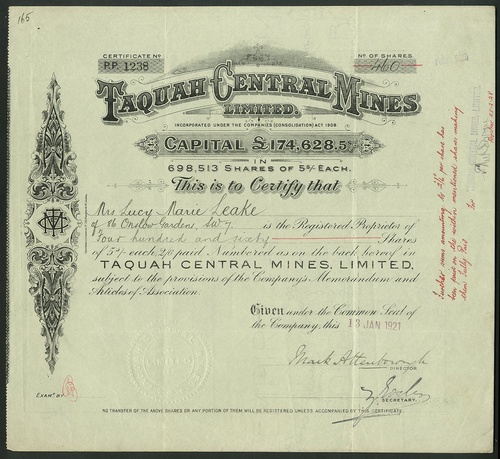 165
CERTIFICATE No
P.P. 1238
No OF SHARES
460
TAQUAH CENTRAL MINES
LIMITED.
INCORPORATED UNDER THE COMPANIES (CONSOLIDATION) ACT 1908.
CAPITAL £174,628.5/-
IN
698,513 SHARES OF 5/- EACH.
This is to Certify that
Mrs Lucy Marie Leake
of 86 Onslow Gardens, SW7 is the Registered Proprietor of
Four hundred and sixty Shares
of 5/- each, 2/6 paid Numbered as on the back hereof in
TAQUAH CENTRAL MINES, LIMITED,
subject to the provisions of the Company's Memorandum and
Articles of Association.
Given under the Common Seal of
the Company, this 13 JAN 1921
Mark Attenborough
DIRECTOR.
SECRETARY.
EXAMD BY
NO TRANSFER OF THE ABOVE SHARES OR ANY PORTION OF THEM WILL BE REGISTERED UNLESS ACCOMPANIED BY THIS CERTIFICATE.
Further sums amounting to 2/6 per share has
been paid on the within mentioned shares making
them Fully Paid